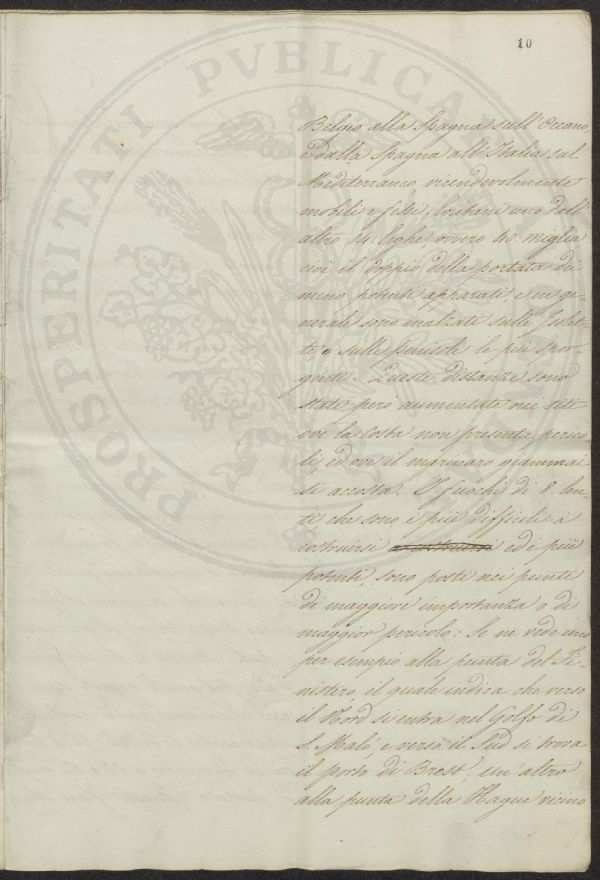 10
PROSPERITATI PVBLICA
Belgio alla Spagna sull' Oceano,
e dalla Spagna all' Italia sul
Mediterraneo, vicendevolmente
mobili e fissi, lontani uno dall'
altro 14. leghe, ovvero 40. miglia
cioè il doppio della portata dei
meno potenti apparati, e in ge-
nerale sono inalzati sulle Isolet-
te o sulle penisole le più spor-
genti. Queste distanze sono
state però aumentate nei siti
ove la Costa non presenta perico-
li, ed ove il marinaro giammai
si accosta. I fuochi di 8. len-
ti che sono i più difficili a
costruirsi ed i più
potenti, sono posti nei punti
di maggiore importanza o di
maggior pericolo: Se ne vede uno
per esempio alla punta del Fi-
nistero, il quale indica che verso
il Nord si entra nel Golfo di
S. Malò, e verso il Sud si trova
il porto di Brest, un' altro
alla punta della Hague vicino